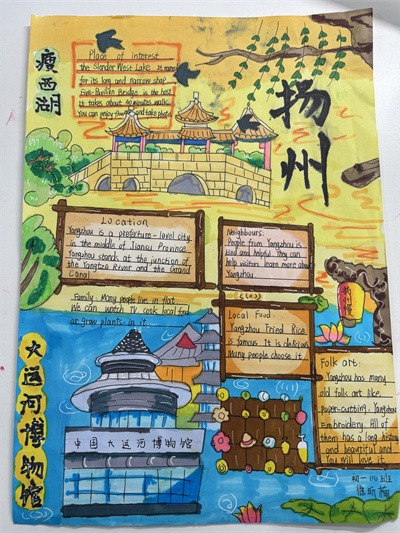 瘦西湖
Place of interest
the Slender West Lake. It named
for its long and narrow shap
Five-Pavilion Bridge is the best
It takes about 90 minutes walk.
You can enjoy and take photos
扬州
Location
Yangzhou is a prefecture-level city
in the middle of Jiansu Province
Yangzhou stands at the junction of
the Yangtze River and the Grand
Canal
Neighbours:
People from Yangzhou is
kind and helpful. They can
help visiters learn more about
Yangzhou.
Family: Many people live in flat.
We can watch TV cook local food
or grow plants in it
Local Food:
Yangzhou Fried Rice
is famous. It is delicious
Many people choose it.
Folk art:
Yangzhou has many
old folk art like,
paper-cutting. Yangzhou
Embroidery. All of
them has a long history
and beautiful and
You will love it.
大运河博物馆
中国大运河博物馆